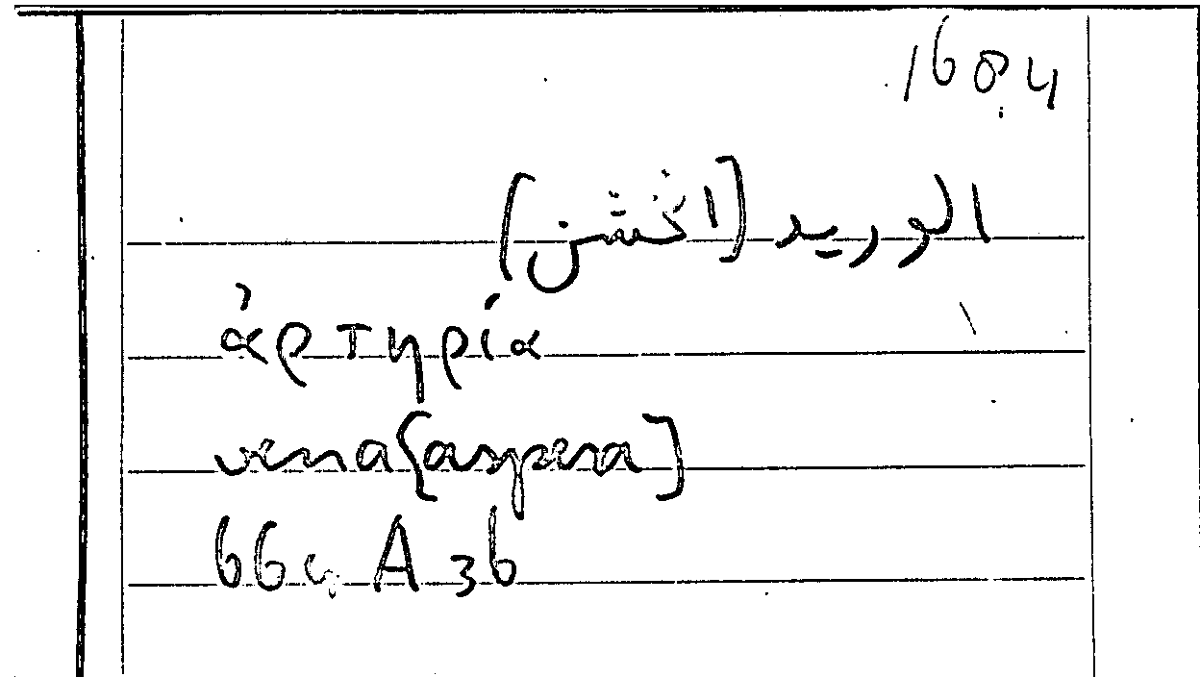 1684
الوريد [الخشن]
ἀρτηρία
vena [aspera]
664 A 36